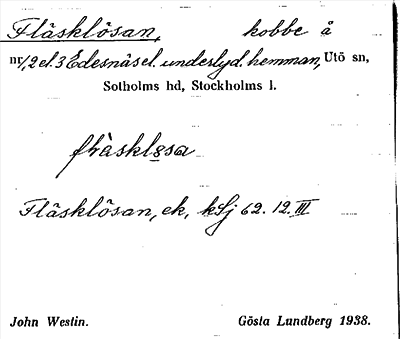 Fläsklösan, kobbe å
nr 1, 2 el. 3 Edesnäs el. underlyd. hemman, Utö sn,
Sotholms hd, Stockholms l.
fläsklosa
Fläsklösan, ek, kSj 62. 12. III
John Westin. Gösta Lundberg 1938.